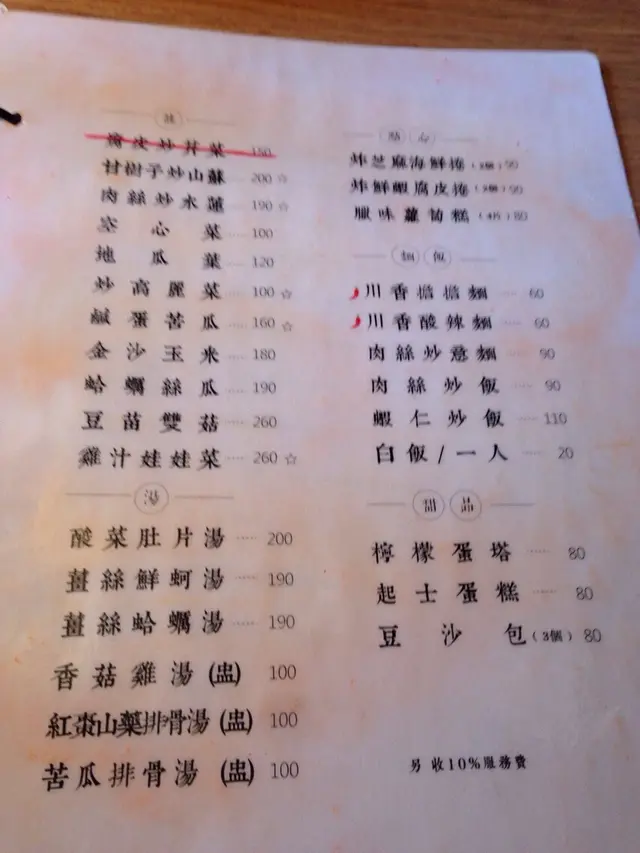 蔬
腐皮炒芹菜 150
甘樹子炒山蘇 200☆
肉絲炒水蓮 190☆
空心菜 100
地瓜葉 120
炒高麗菜 100☆
鹹蛋苦瓜 160☆
金沙玉米 180
蛤蠣絲瓜 190
豆苗雙菇 260
雞汁娃娃菜 260☆
湯
酸菜肚片湯 200
薑絲鮮蚵湯 190
薑絲蛤蠣湯 190
香菇雞湯(盅) 100
紅棗山藥排骨湯(盅) 100
苦瓜排骨湯(盅) 100
點心
炸芝麻海鮮捲 90
炸鮮蝦腐皮捲 90
臘味蘿蔔糕(4片) 80
麵飯
川香擔擔麵 60
川香酸辣麵 60
肉絲炒意麵 90
肉絲炒飯 90
蝦仁炒飯 110
白飯/一人 20
甜品
檸檬蛋塔 80
起士蛋糕 80
豆沙包(3個) 80
另收10%服務費